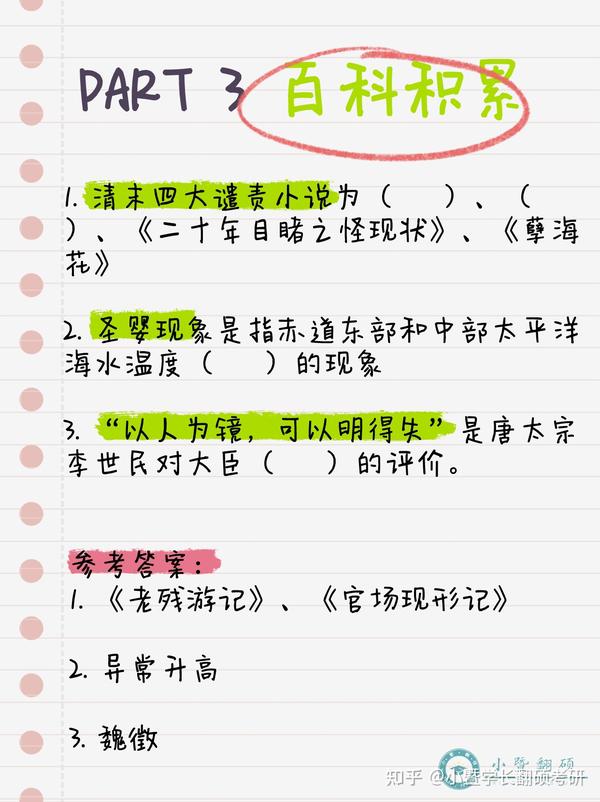 PART 3 百科积累
1. 清末四大谴责小说为（ ）、（
）、《二十年目睹之怪现状》、《孽海
花》
2. 圣婴现象是指赤道东部和中部太平洋
海水温度（ ）的现象
3. “以人为镜，可以明得失”是唐太宗
李世民对大臣（ ）的评价。
参考答案：
1. 《老残游记》、《官场现形记》
2. 异常升高
3. 魏徵
小暨翻硕
知乎 @小暨学长翻硕考研